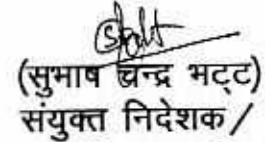 (सुभाष चन्द्र भट्ट)
संयुक्त निदेशक/